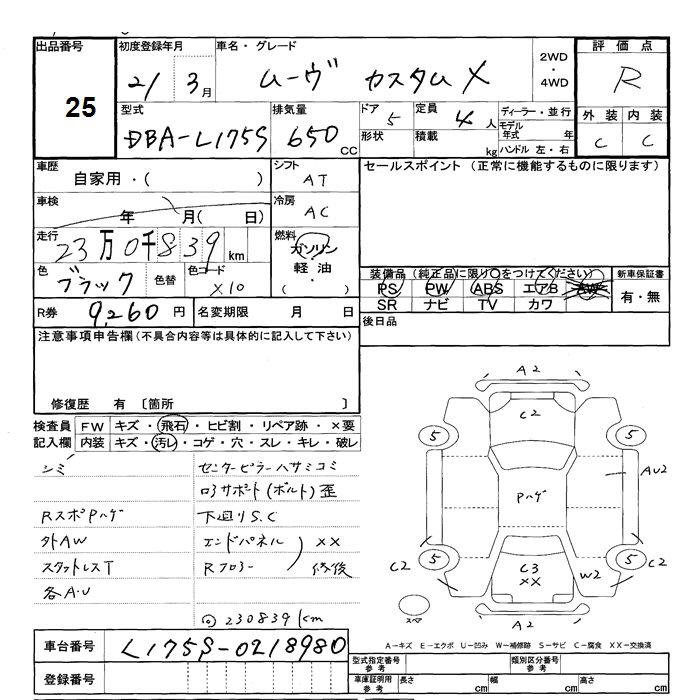 出品番号 初度登録年月 車名・グレード 2WD・4WD 評価点
25 21 3月 ムーヴ カスタム X R
型式 排気量 ドア 5 定員 4人 ディーラー・並行 外装 内装
DBA-L175S 650 CC 形状 積載 kg モデル年式 年 ハンドル 左・右 C C
車歴 シフト セールスポイント (正常に機能するものに限ります)
自家用・( ) AT
車検 年 月( 日) 冷房 AC
走行 23万0千839 km 燃料 ガソリン
色 ブラック 色替 色コード X10 軽油・( )
装備品 (純正品に限り○をつけてください) 新車保証書
PS PW ABS エアB AW 有・無
SR ナビ TV カワ
R券 9,260 円 名変期限 月 日 後日品
注意事項申告欄 (不具合内容等は具体的に記入して下さい)
修復歴 有 〔箇所 〕
検査員 FW キズ・飛石・ヒビ割・リペア跡・×要
記入欄 内装 キズ・汚レ・コゲ・穴・スレ・キレ・破レ
シミ センターピラーハサミコミ
ロアサポート(ボルト)歪
RスポPハゲ 下回りS.C
外AW エンドパネル XX
スタットレスT Rフロアー 修後
各A・U
◎230839km
A2
C2
5 5
AU2
Pハゲ
5 5
C2 C3 XX W2 C2
スペア A2
A-キズ E-エクボ U-凹み W-補修跡 S-サビ C-腐食 XX-交換済
車台番号 L175S-0218980
登録番号
型式指定番号 参考 類別区分番号 参考
車庫証明用 参考 長さ cm 幅 cm 高さ cm